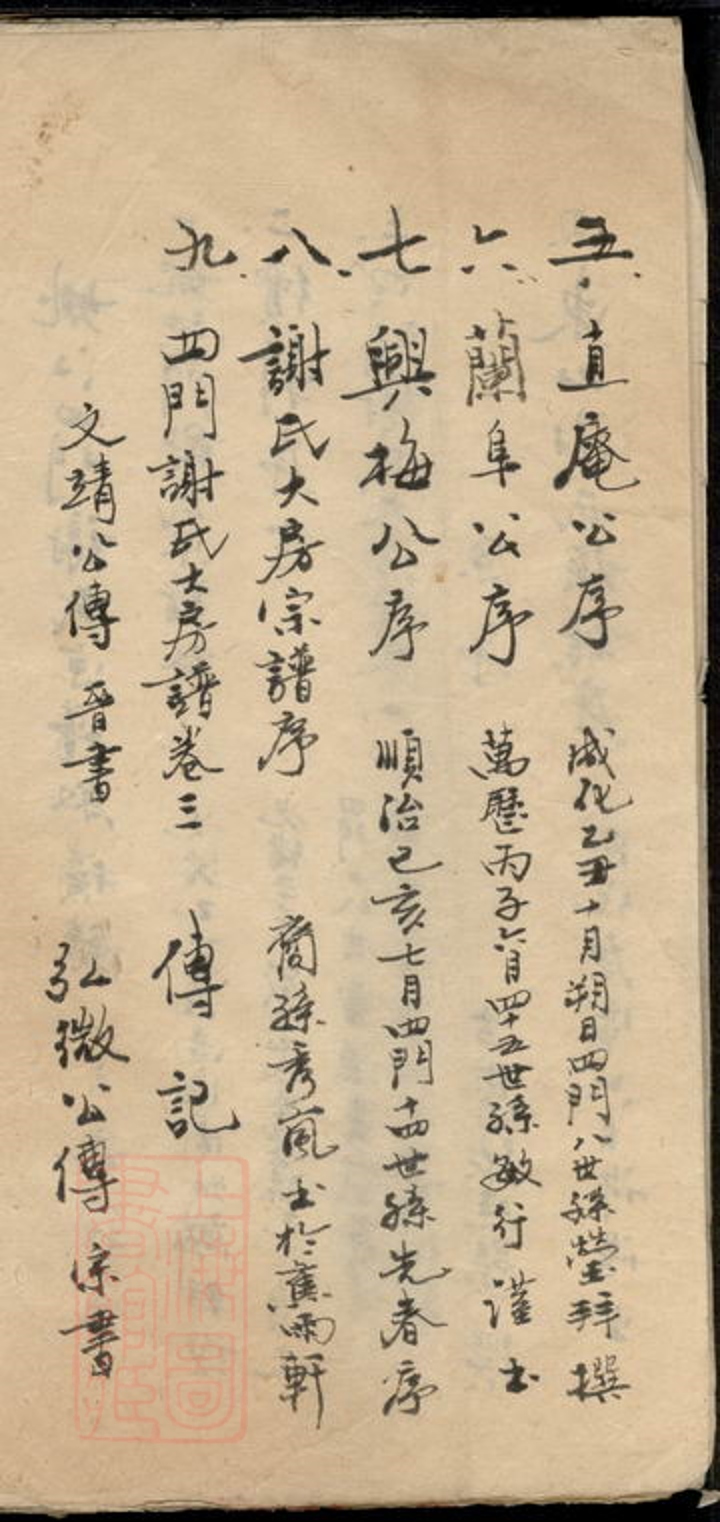 五、直庵公序　成化乙丑十月朔日四門八世孫瑩拜撰
六、蘭阜公序　萬歷丙子六月四十五世孫敏行謹书
七、興梅公序　順治己亥七月四門十四世孫先春序
八、謝氏大房宗譜序　裔孫秀嵐书於蕉雨軒
九、四門謝氏大房譜卷三　傳記
文靖公傳　晉書　弘微公傳　宋書
上海圖書館藏